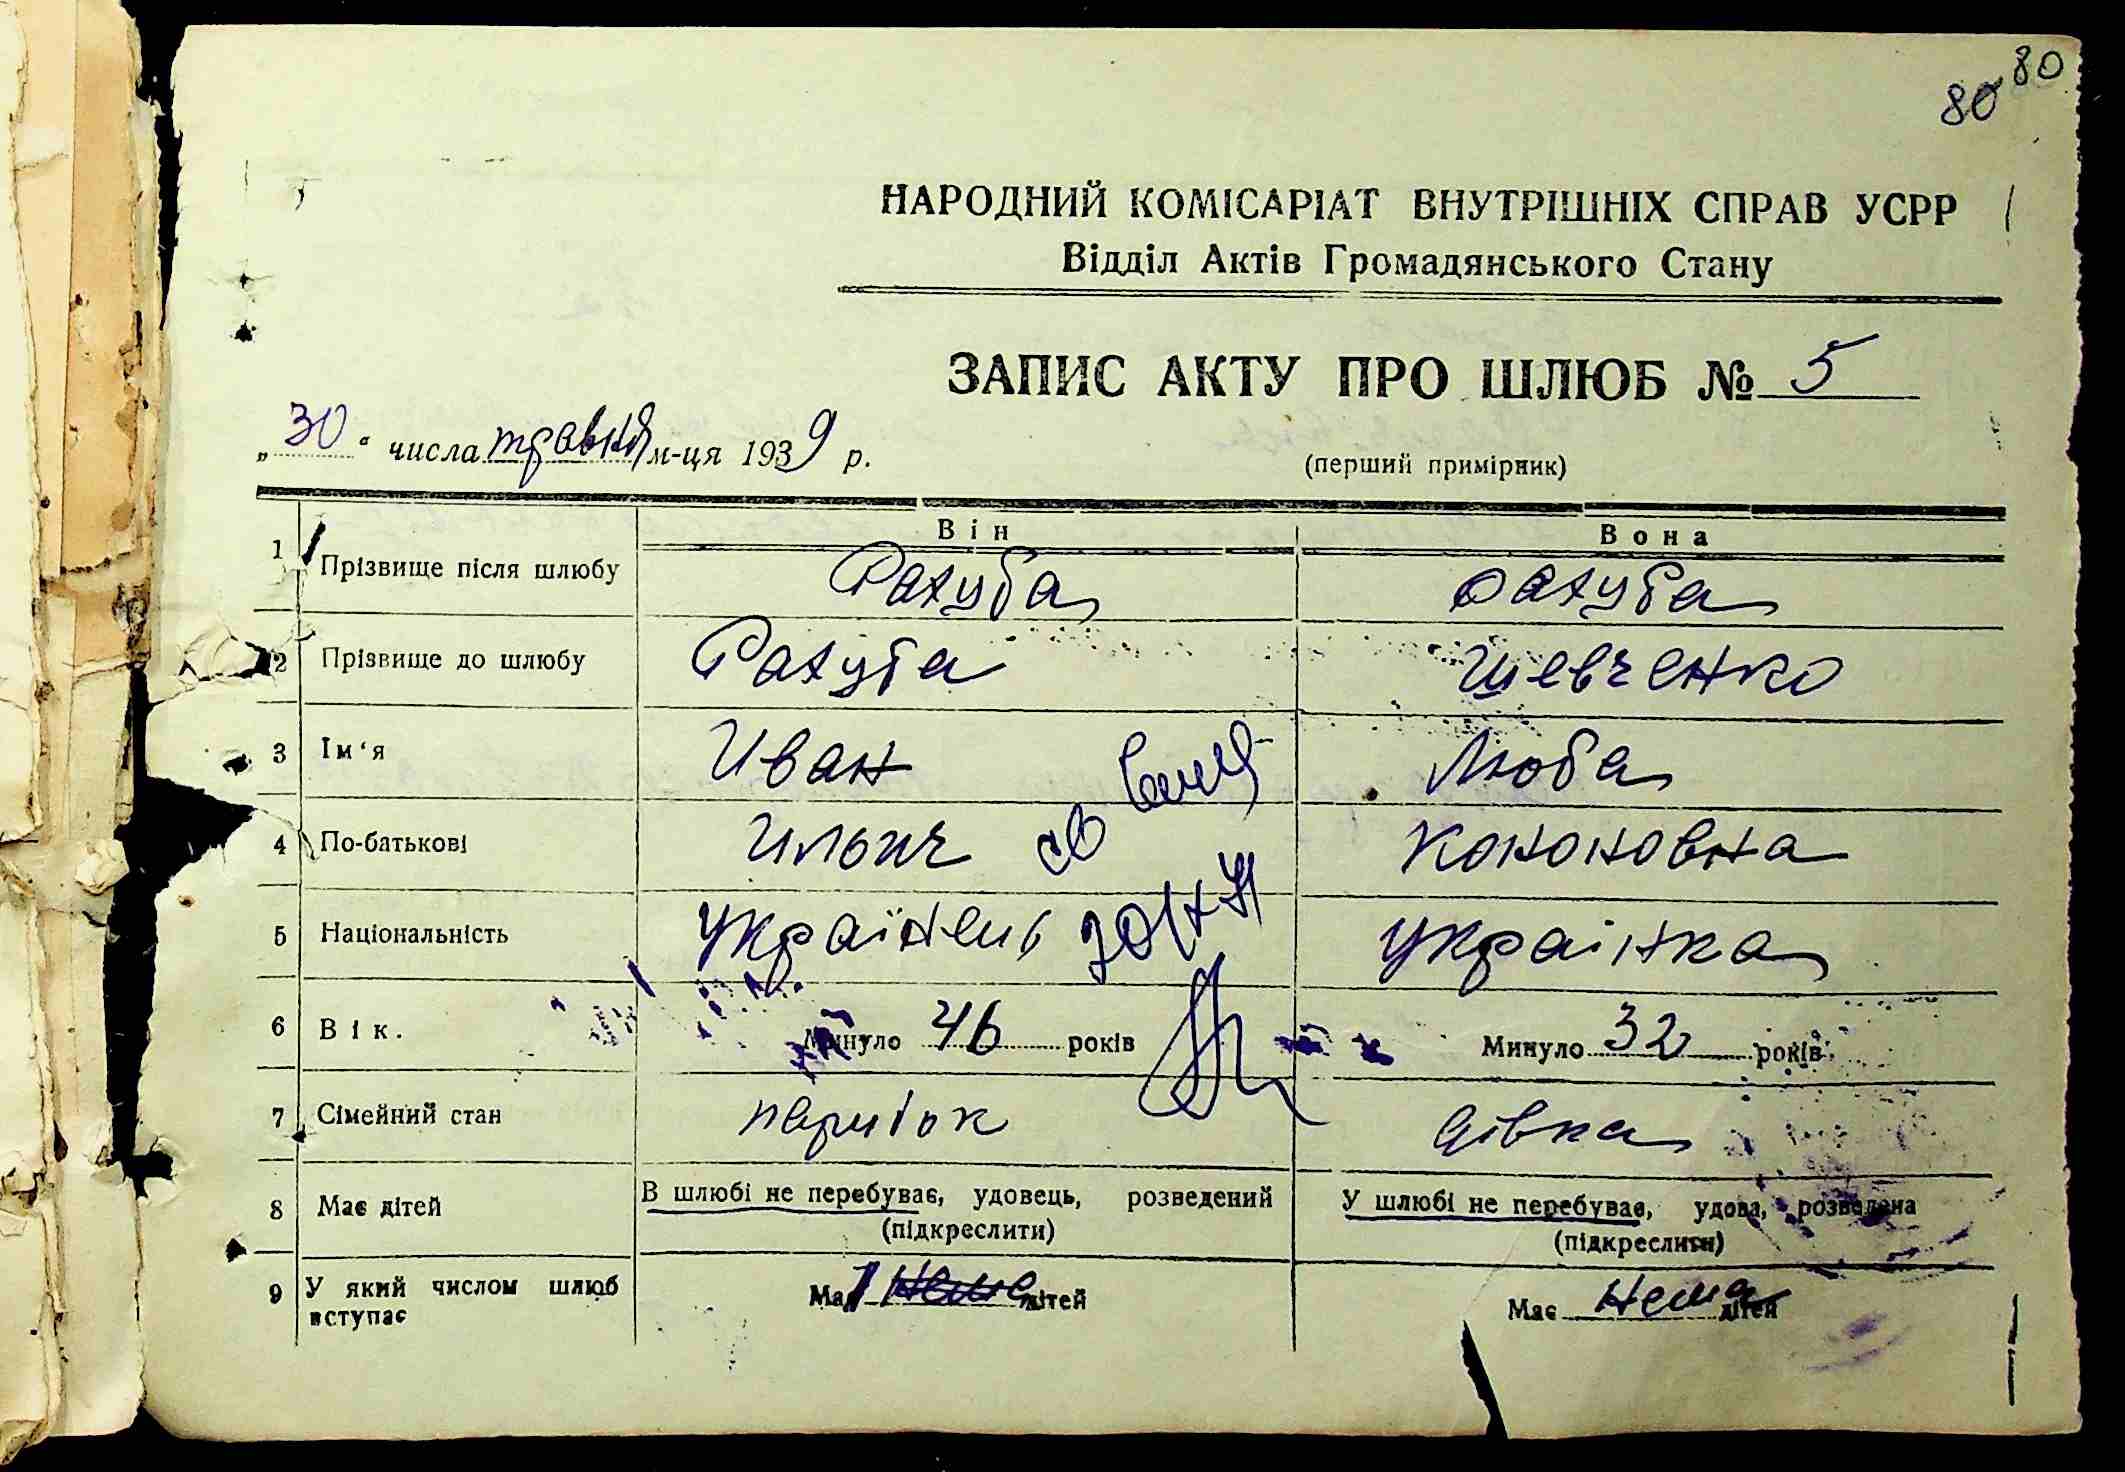 80
80
НАРОДНИЙ КОМІСАРІАТ ВНУТРІШНІХ СПРАВ УСРР
Відділ Актів Громадянського Стану
ЗАПИС АКТУ ПРО ШЛЮБ № 5
„30“ числа травня м-ця 1939 р.
(перший примірник)
Він Вона
1 Прізвище після шлюбу Рахуба Рахуба
2 Прізвище до шлюбу Рахуба Шевченко
3 Ім‘я Иван Люба
4 По-батькові Ильич Кононовна
5 Національність Українець Українка
6 Вік. Минуло 46 років Минуло 32 років
7 Сімейний стан дівка
8 Має дітей В шлюбі не перебуває, удовець, розведений У шлюбі не перебуває, удова, розведена
(підкреслити) (підкреслити)
9 У який числом шлюб вступає Має Нема дітей Має Нема дітей